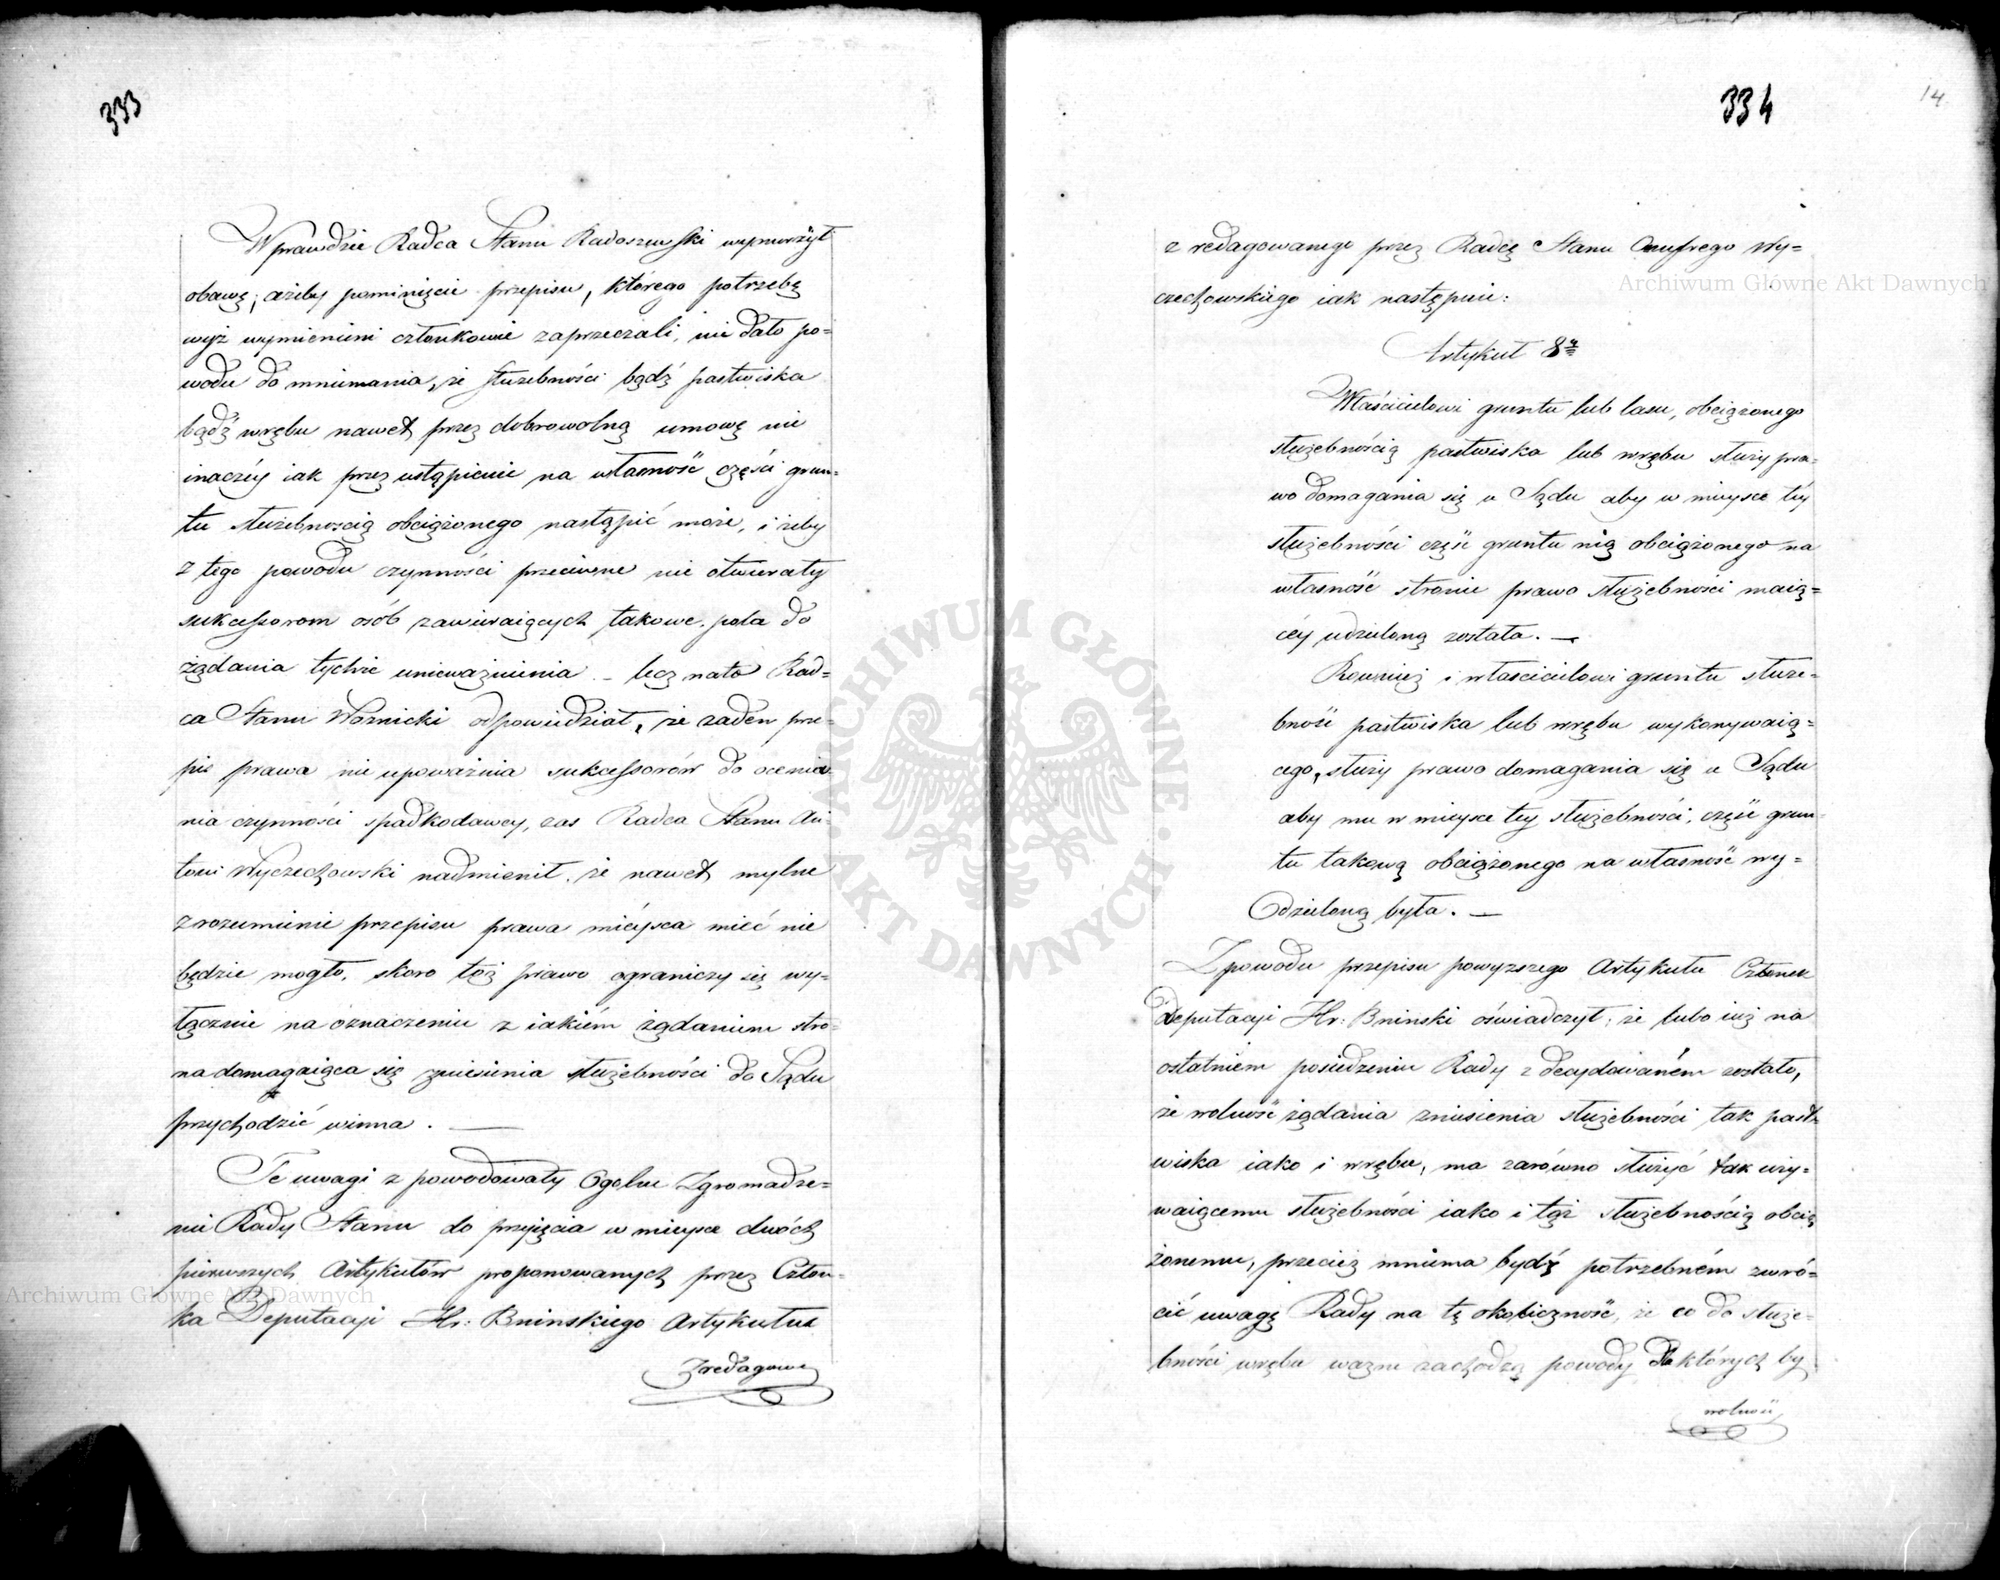 333
Wprawdzie Radca Stanu Radoszewski wynurzył
obawę, ażeby pominięcie przepisu, którego potrzebę
wyż wymienieni członkowie zaprzeczali, nie dało po=
wodu do mniemania, że służebności bądź pastwiska
bądź wrębu nawet przez dobrowolną umowę nie
inaczéy iak przez ustąpienie na własność części grun=
tu służebnością obciążonego nastąpić może, i żeby
z tego powodu czynności przeciwne nie otwierały
sukcessorom osób zawieraiących takowe, pola do
żądania tychże unieważnienia – lecz na to Rad=
ca Stanu Woznicki odpowiedział, że zaden prze=
pis prawa nie upoważnia sukcessorów do ocenia=
nia czynności spadkodawcy, zas Radca Stanu An=
toni Wyczechowski nadmienił, że nawet mylne
zrozumienie przepisu prawa mieysca mieć nie
będzie mogło, skoro toż prawo ograniczy się wy=
łącznie na oznaczeniu z iakiém żądaniem stro=
na domagaiąca się zniesienia służebności do Sądu
przychodzić winna. —
Te uwagi z powodowały Ogólne Zgromadze=
nie Rady Stanu do przyięcia w mieysce dwóch
pierwszych Artykułów proponowanych przez Człon=
ka Deputacyi Hr: Bninskiego Artykułu
Zredagowa
334
14
z redagowanego przez Radcę Stanu Onufrego Wy=
czechowskiego iak następuie:
Artykuł 8y
Właścicielowi gruntu lub lasu, obciążonego
służebnością pastwiska lub wrębu służy pra=
wo domagania się u Sądu aby w mieysce téy
służebności część gruntu nią obciążonego na
własność stronie prawo służebności maią=
céy udzieloną została. —
Rownież i właścicielowi gruntu służe=
bność pastwiska lub wrębu wykonywaią=
cego, służy prawo domagania się u Sądu
aby mu w mieysce tey służebności, część grun=
tu takową obciążonego na własność wy=
dzieloną była. —
Z powodu przepisu powyższego Artykułu Członek
Deputacyi Hr: Bninski oświadczył, że lubo iuż na
ostatniem posiedzeniu Rady zdecydowaném zostało,
że wolność żądania zniesienia służebności tak past=
wiska iako i wrębu, ma zarówno służyć tak uży=
waiącemu służebności iako i tąż służebnością obcią
żonemu, przecież mniema bydź potrzebném zwró=
cić uwagę Rady na tę okoliczność, że co do służe=
bności wrębu ważne zachodzą powody dla których by
wolność
Archiwum Główne Akt Dawnych
Archiwum Główne Akt Dawnych
ARCHIWUM GŁÓWNE · AKT DAWNYCH ·